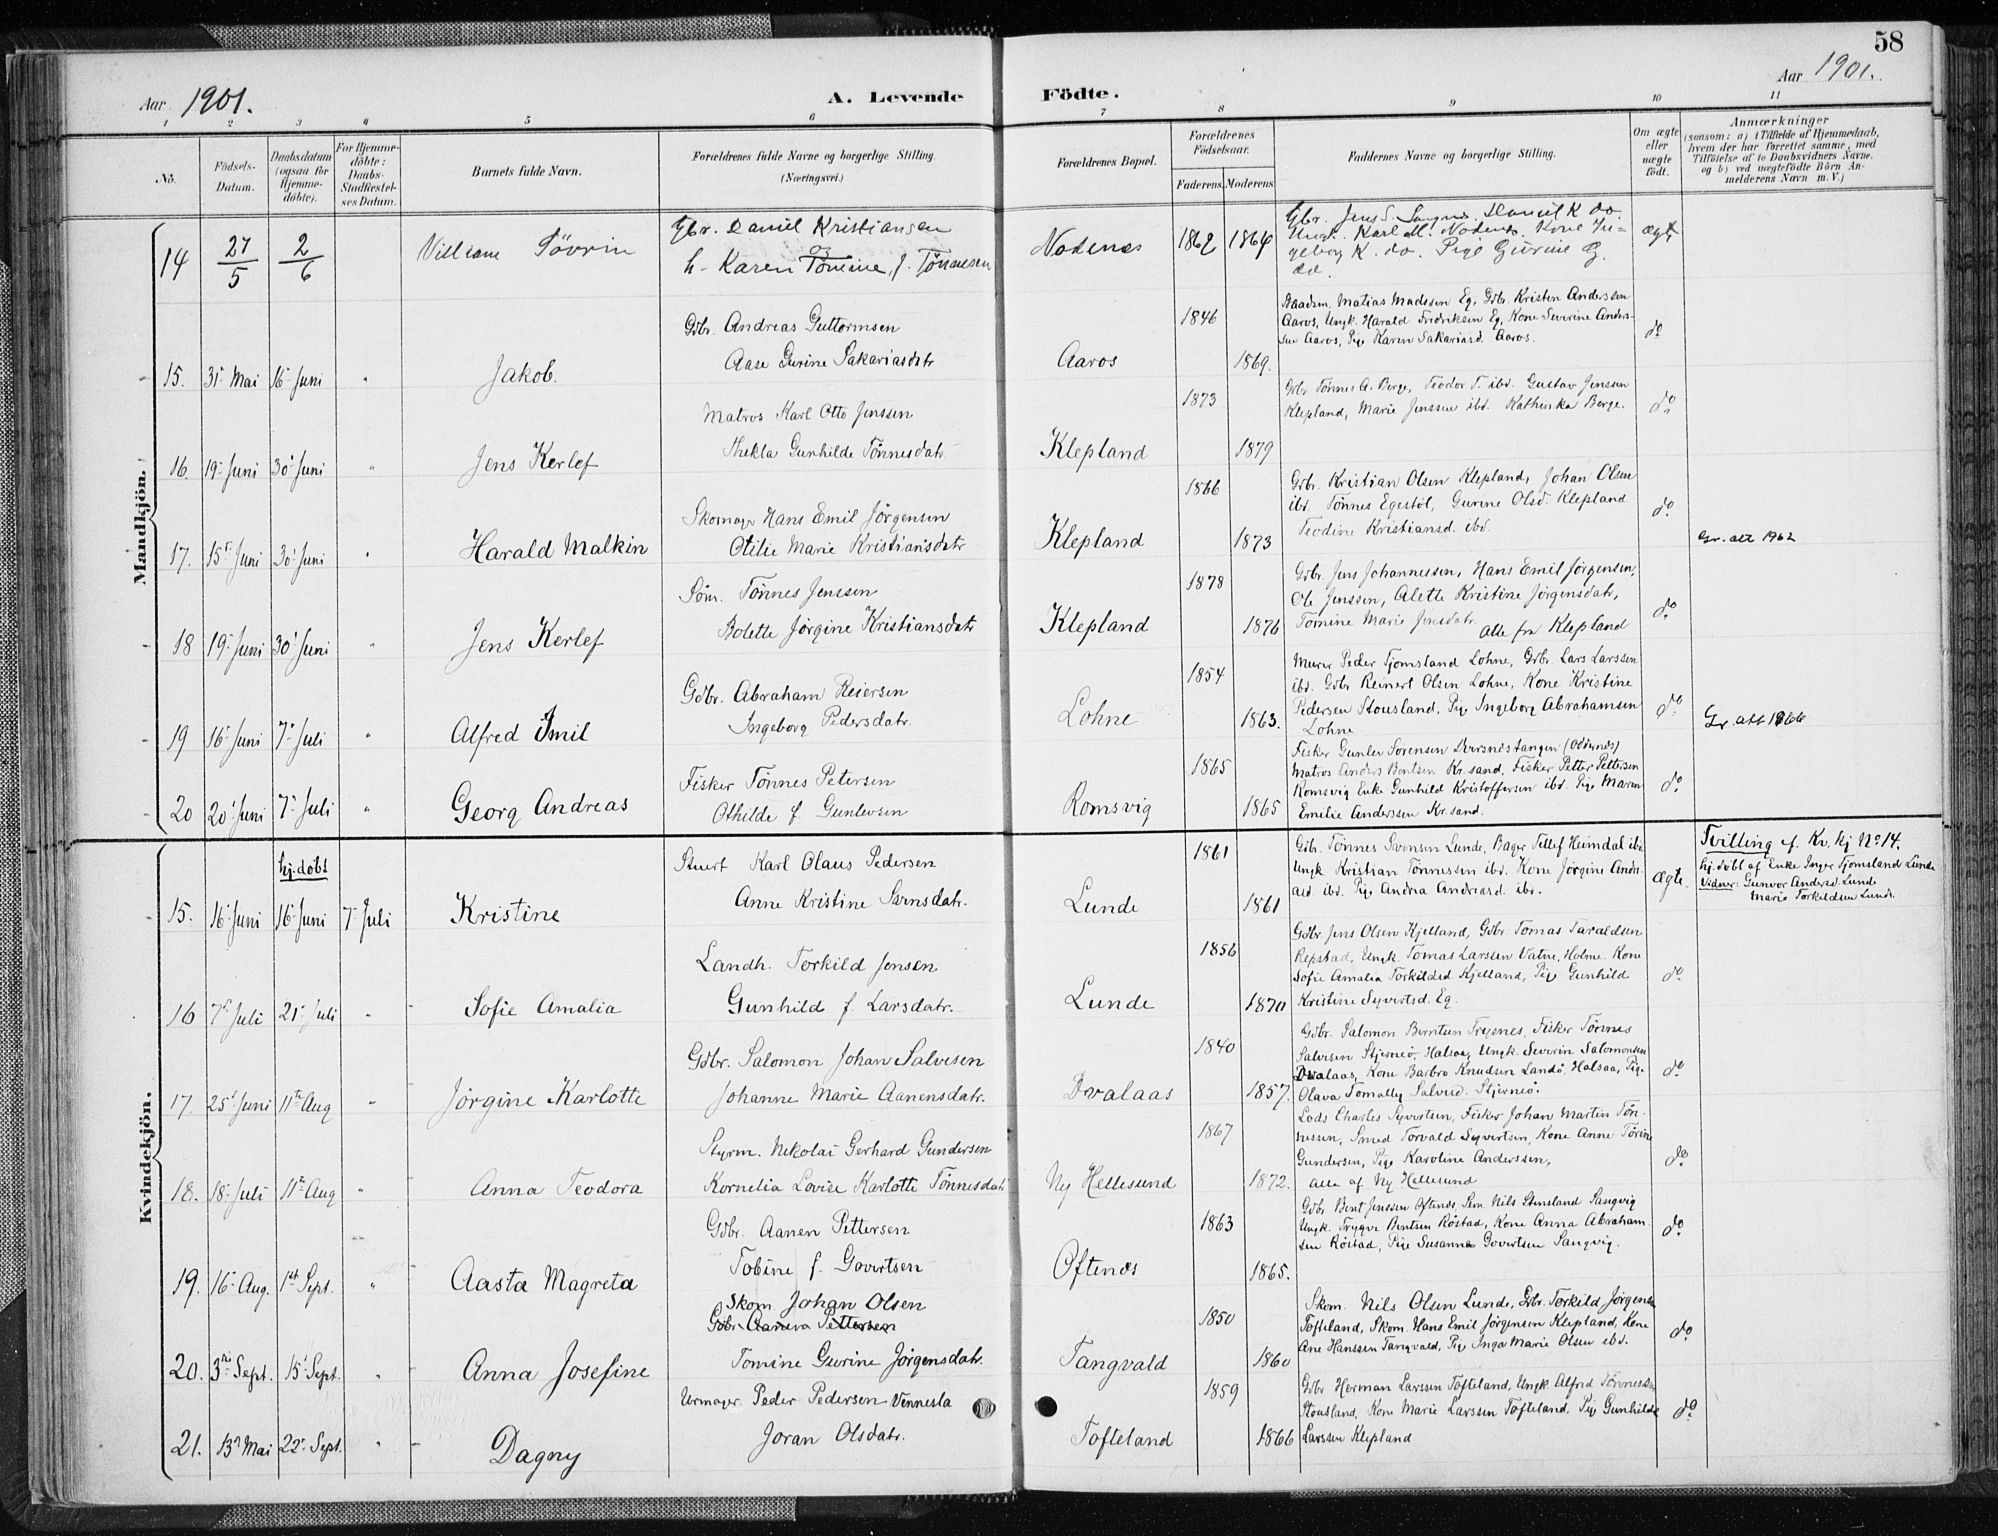 58
Aar 1901.
A. Levende Födte.
Aar 1901.
1 2 3 4 5 6 7 8 9 10 11
No.
Födsels-Datum.
Daabsdatum (ogsaa for Hjemme-döbte).
For Hjemme-döbte: Daabs-Stadfæstel-ses Datum.
Barnets fulde Navn.
Forældrenes fulde Navne og borgerlige Stilling.
(Næringsvei.)
Forældrenes Bopæl.
Forældrenes Födselsaar.
Faderens. Moderens.
Faddernes Navne og borgerlige Stilling.
Om ægte eller uægte födt.
Anmærkninger
(saasom: a) i Tilfælde af Hjemmedaab,
hvem der har forrettet samme, med
Tilföielse af to Daabsvidners Navne,
og b) ved uægtefödte Börn An-
melderens Navn m. V.)
Mandkjön.
14 27/5 2/6 William Tövrin
Gbr. Daniel Kristiansen
og
h- Karen Tomine, f. Tönnesen
Nodenes 1862 1864
Gbr. Jens S. Daniel K do.
Ungk. Karl M. Nodenes. Kone In-
geborg K. do. Pige Gurine G.
do.
ægte
15. 31- Mai 16- Juni " Jakob.
Gdbr. Andreas Guttormsen
Aase Gurine Sakariasdatr
Aaros 1846 1869.
Baadsm. Matias Madssen Eg, Gdbr. Kristen Anderssen
Aaros, Ungk. Harald Fredriksen Eg, Kone Severine Anders-
sen Aaros, Pige Karen Sakariasd. Aaros.
do
16. 19- Juni 30' Juni " Jens Kerlef
Matros Karl Otto Jenssen
Thekla Gunhilde Tönnesdatr
Klepland 1873 1879
Gdbr. Tönnes A. Berge, Teodor T. ibd. Gustav Jenssen
Klepland, Marie Jenssen ibd. Kathinka Berge.
do.
17. 15- Juni 30' Juni " Harald Malkin
Skomager Hans Emil Jörgensen
Otilie Marie Kristiansdatr
Klepland 1866 1873
Gdbr. Kristian Olsen Klepland, Johan Olsen
ibd. Tönnes Egestöl, Gurine Olsd. Klepland
Teodine Kristiansd. ibd.
do
Gr. att 1962
18 19- Juni 30' Juni " Jens Kerlef
Söm. Tönnes Jenssen
Bolette Jörgine Kristiansdatr
Klepland 1878 1876
Gdbr. Jens Johannessen, Hans Emil Jörgensen,
Ole Jenssen, Alette Kristine Jörgensdatr,
Tomine Marie Jensdatr. alle fra Klepland
do
19 16- Juni 7- Juli " Alfred Emil
Gdbr. Abraham Reiersen
Ingeborg Pedersdatr.
Lohne 1854 1863.
Murer Peder Tjomsland Lohne, Gdbr. Lars Larssen
ibd. Gdbr Reinert Olsen Lohne, Kone Kristine
Pedersen Stousland, Pige Ingeborg Abrahamsen
Lohne
do.
Gr. att 1966
20 20' Juni 7- Juli " Georg Andreas
Fisker Tönnes Petersen
Othilde f. Gunlevsen
Romsvig 1865 1865
Fisker Gunlev Sörensen (Oddernes)
Matros Anders Bentsen Kr.sand, Fisker Petter Pettersen
Romsvig Enke Gunhild Kristoffersen ibd. Pige Maren
Emilie Anderssen Kr.sand.
do.
Kvindekjön.
hj.döbt
15. 16- Juni 16- Juni 7- Juli Kristine
Stuert Karl Olaus Pedersen
Anne Kristine Svensdatr.
Lunde 1861 1861
Gdbr. Tönnes Svensen Lunde, Bager Tellef Heimdal ibd
Ungk Kristian Tönnessen ibd. Kone Jörgine Andre-
asd. ibd. Pige Andrea Andreasd. ibd.
ægte.
Tvilling af Kv. kj No. 14.
hj.döbt af Enke Inger Tjomsland Lunde
Vidner: Gunvor Andersd. Lunde
Marie Torkildsen Lunde.
16 7- Juli 21- Juli " Sofie Amalia
Landh. Torkild Jensen
Gunhild f. Larsdatr.
Lunde 1856 1870
Gdbr Jens Olsen Kjelland, Gdbr. Tomas Taraldsen
Repstad, Ungk Tomas Larssen Vatne, Holme. Kone
Sofie Amalia Torkildsd Kjelland, Pige Gunhild
Kristine Syvertsd. Eg.
do
17. 25' Juni 11te Aug " Jörgine Karlotte
Gdbr. Salomon Johan Salvesen
Johanne Marie Aanensdatr.
Dvalaas 1840 1857.
Gdbr. Salomon Berntsen Trysnes, Fisker Tönnes
Salvesen Stjerneö, Halsaa, Ungk. Severin Salomonsen
Dvalaas, Kone Barbro Knudsen Landö, Halsaa, Pige
Olava Salvesd. Stjerneö.
do
18. 18- Juli 11te Aug " Anna Teodora
Styrm. Nikolai Gerhard Gundersen
Kornelia Lovise Karlotte Tönnesdatr
Ny Hellesund 1867 1872.
Lods Charles Syvertsen, Fisker Johan Martin Tön-
nessen, Smed Torvald Syvertsen, Kone Anne Törine
Gundersen, Pige Karoline Anderssen,
alle af Ny Hellesund
do.
19. 16- Aug. 1st Sept. " Aasta Magreta
Gdbr. Aanen Pettersen
Tobine f. Govertsen
Oftenes 1863 1865.
Gdbr Bent Jenssen Oftenes, Sem. Nils Stensland Sangvig
Ungk. Trygve Bentsen Röstad, Kone Anna Abraham-
sen Röstad, Pige Susanna Govertsen Sangvig.
do
20. 3die Sept. 15' Sept. " Anna Josefine
Skom. Johan Olsen
Gdbr. Aanen Pettersen
Tomine Gurine Jörgensdatr.
Tangvald 1850 1860
Skom. Nils Olsen Lunde, Gdbr. Torkild Jörgensen
Tofteland, Skom. Hans Emil Jörgensen Klepland, Kone
Ane Hanssen Tangvald, Pige Inga Marie Olsen ibd.
do
21. 13- Mai 22- Sept. " Dagny
Urmager. Peder Pedersen Vennesla
Joran Olsdatr.
Tofteland 1859 1866
Gdbr Herman Larssen Tofteland, Ungk Alfred Tönnessen
Stousland, Kone Marie Larssen Tofteland, Pige Gunhilde
Larssen Klepland
do